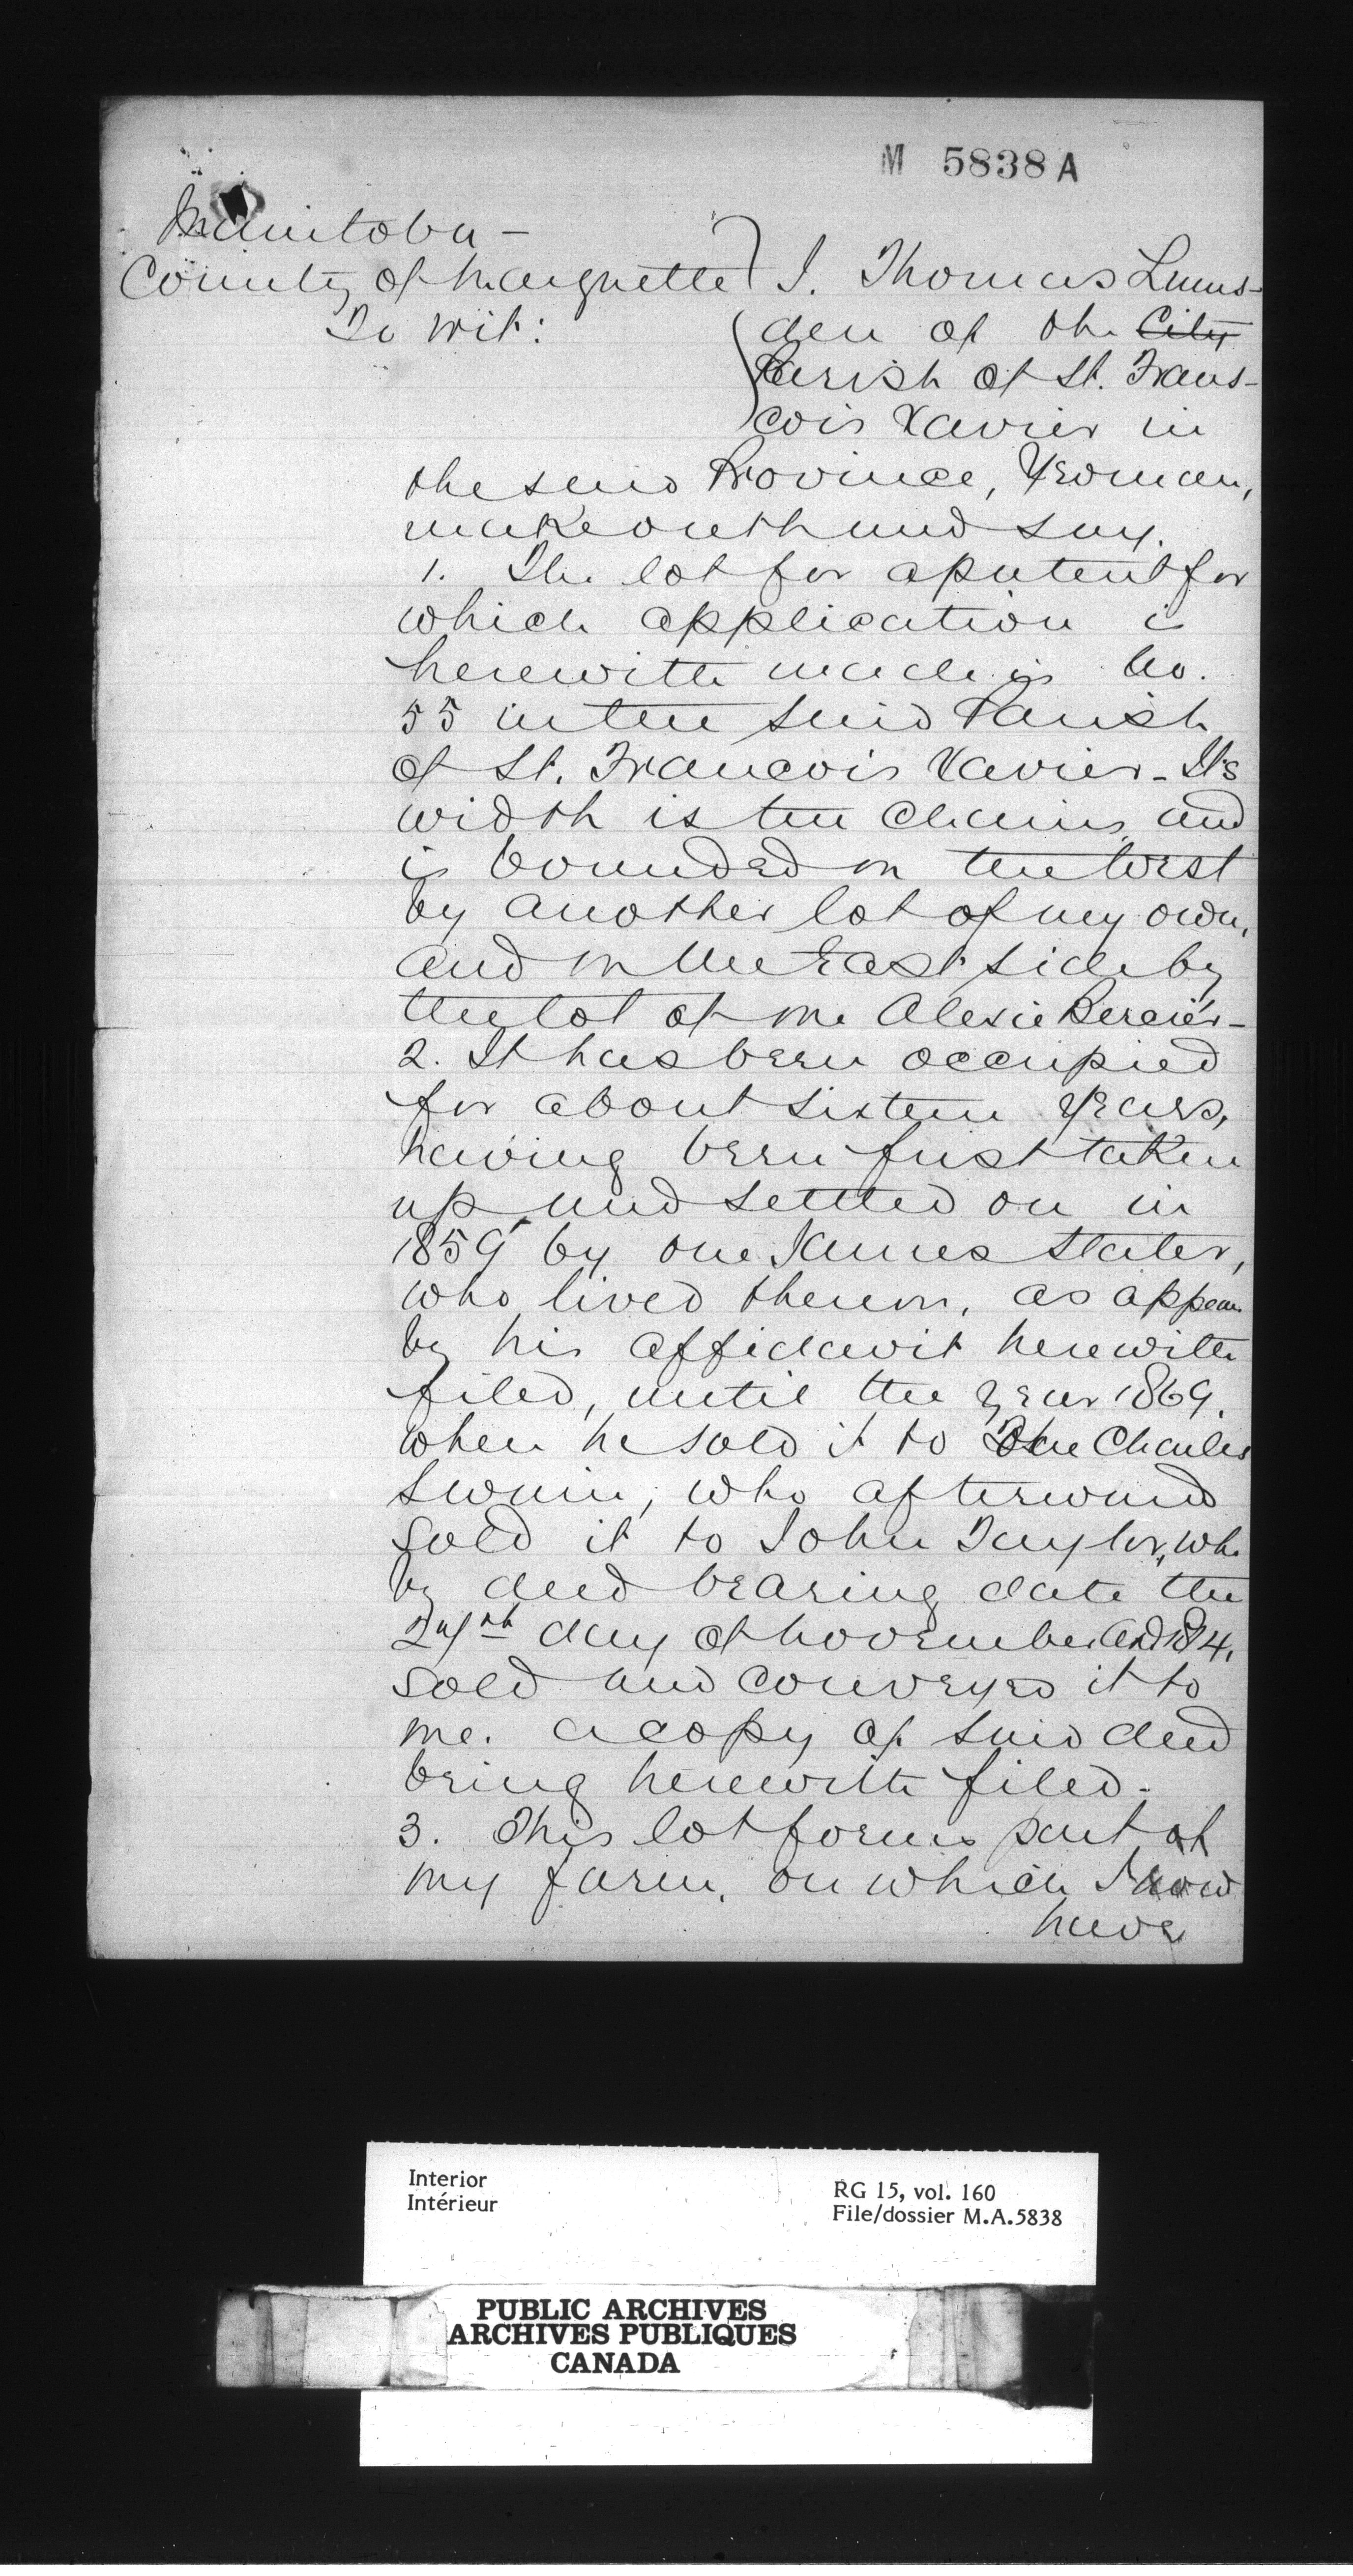 M 5838 A
Manitoba -
County of Marquette } I. Thomas Lums-
To wit: den of the City
Parish of St. Frans-
cois Xavier in
the said Province, Yeoman,
make oath and say.
1. The lot for a patent for
which application is
herewith made is No.
55 in the said Parish
of St. Francois Xavier - Its
width is ten chains and
is bounded on the West
by another lot of my own,
and on the East side by
the lot of one Alexie Bercier -
2. It has been occupied
for about sixteen years,
having been first taken
up and settled on in
1859 by one James Slater,
who lived thereon, as appears
by his affidavit herewith
filed, until the year 1869.
when he sold it to One Charles
Swain, who afterward
sold it to John Taylor, who
by deed bearing date the
day of November AD
sold and conveyed it to
me. a copy of said deed
being herewith filed.
3. This lot forms part of
my farm, on which I now
have
Interior
Intérieur
RG 15, vol. 160
File/dossier M.A.5838
PUBLIC ARCHIVES
ARCHIVES PUBLIQUES
CANADA